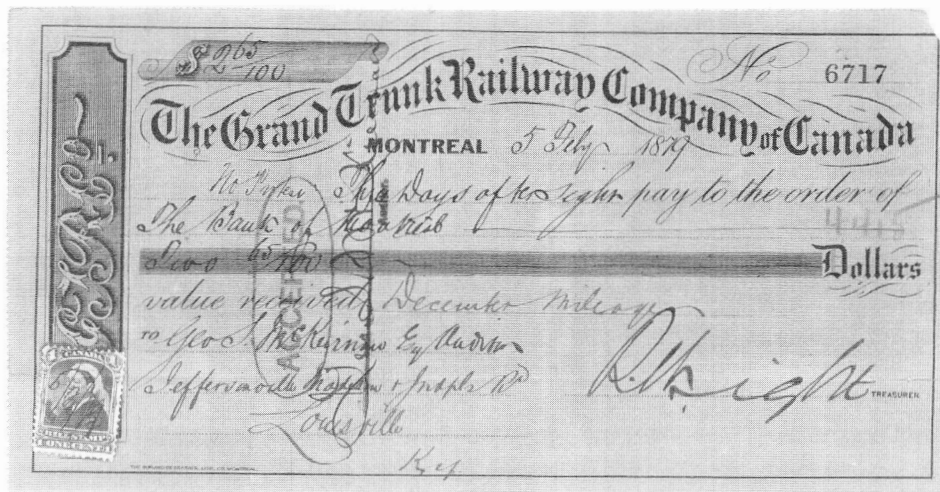 $ 2 65/100
No 6717
The Grand Trunk Railway Company of Canada
MONTREAL 5 Feby 1879
No Protest Three Days after sight pay to the order of
The Bank of Montreal
Two 65/100 Dollars
value received December Mileage
To Geo S. McKiernan Esq Auditor
Jeffersonville Madison & Indpls Rd
Louisville
Key
TREASURER
ACCEPTED
G.T.R. Co.
CANADA
BILL STAMP
ONE CENT